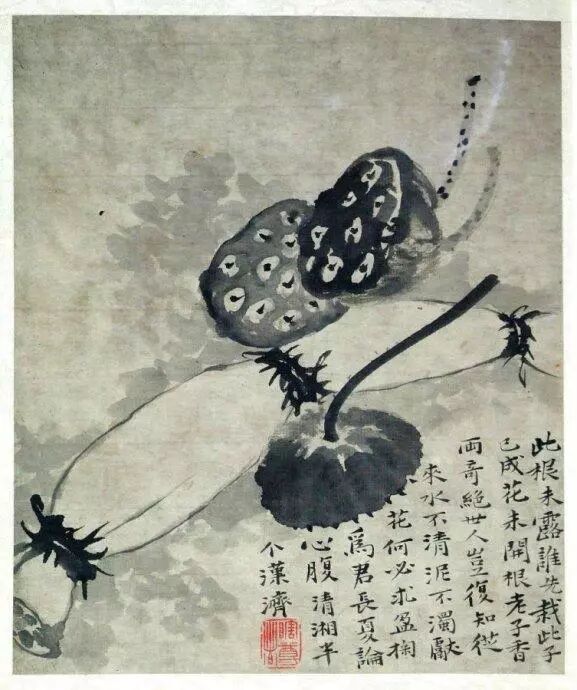 此根未露誰先栽此子
已成花未開根老子香
兩奇絕世人豈復知從
來水不清泥不濁獻
花何必求盈掬
為君長夏論
心腹清湘半
个漢濟